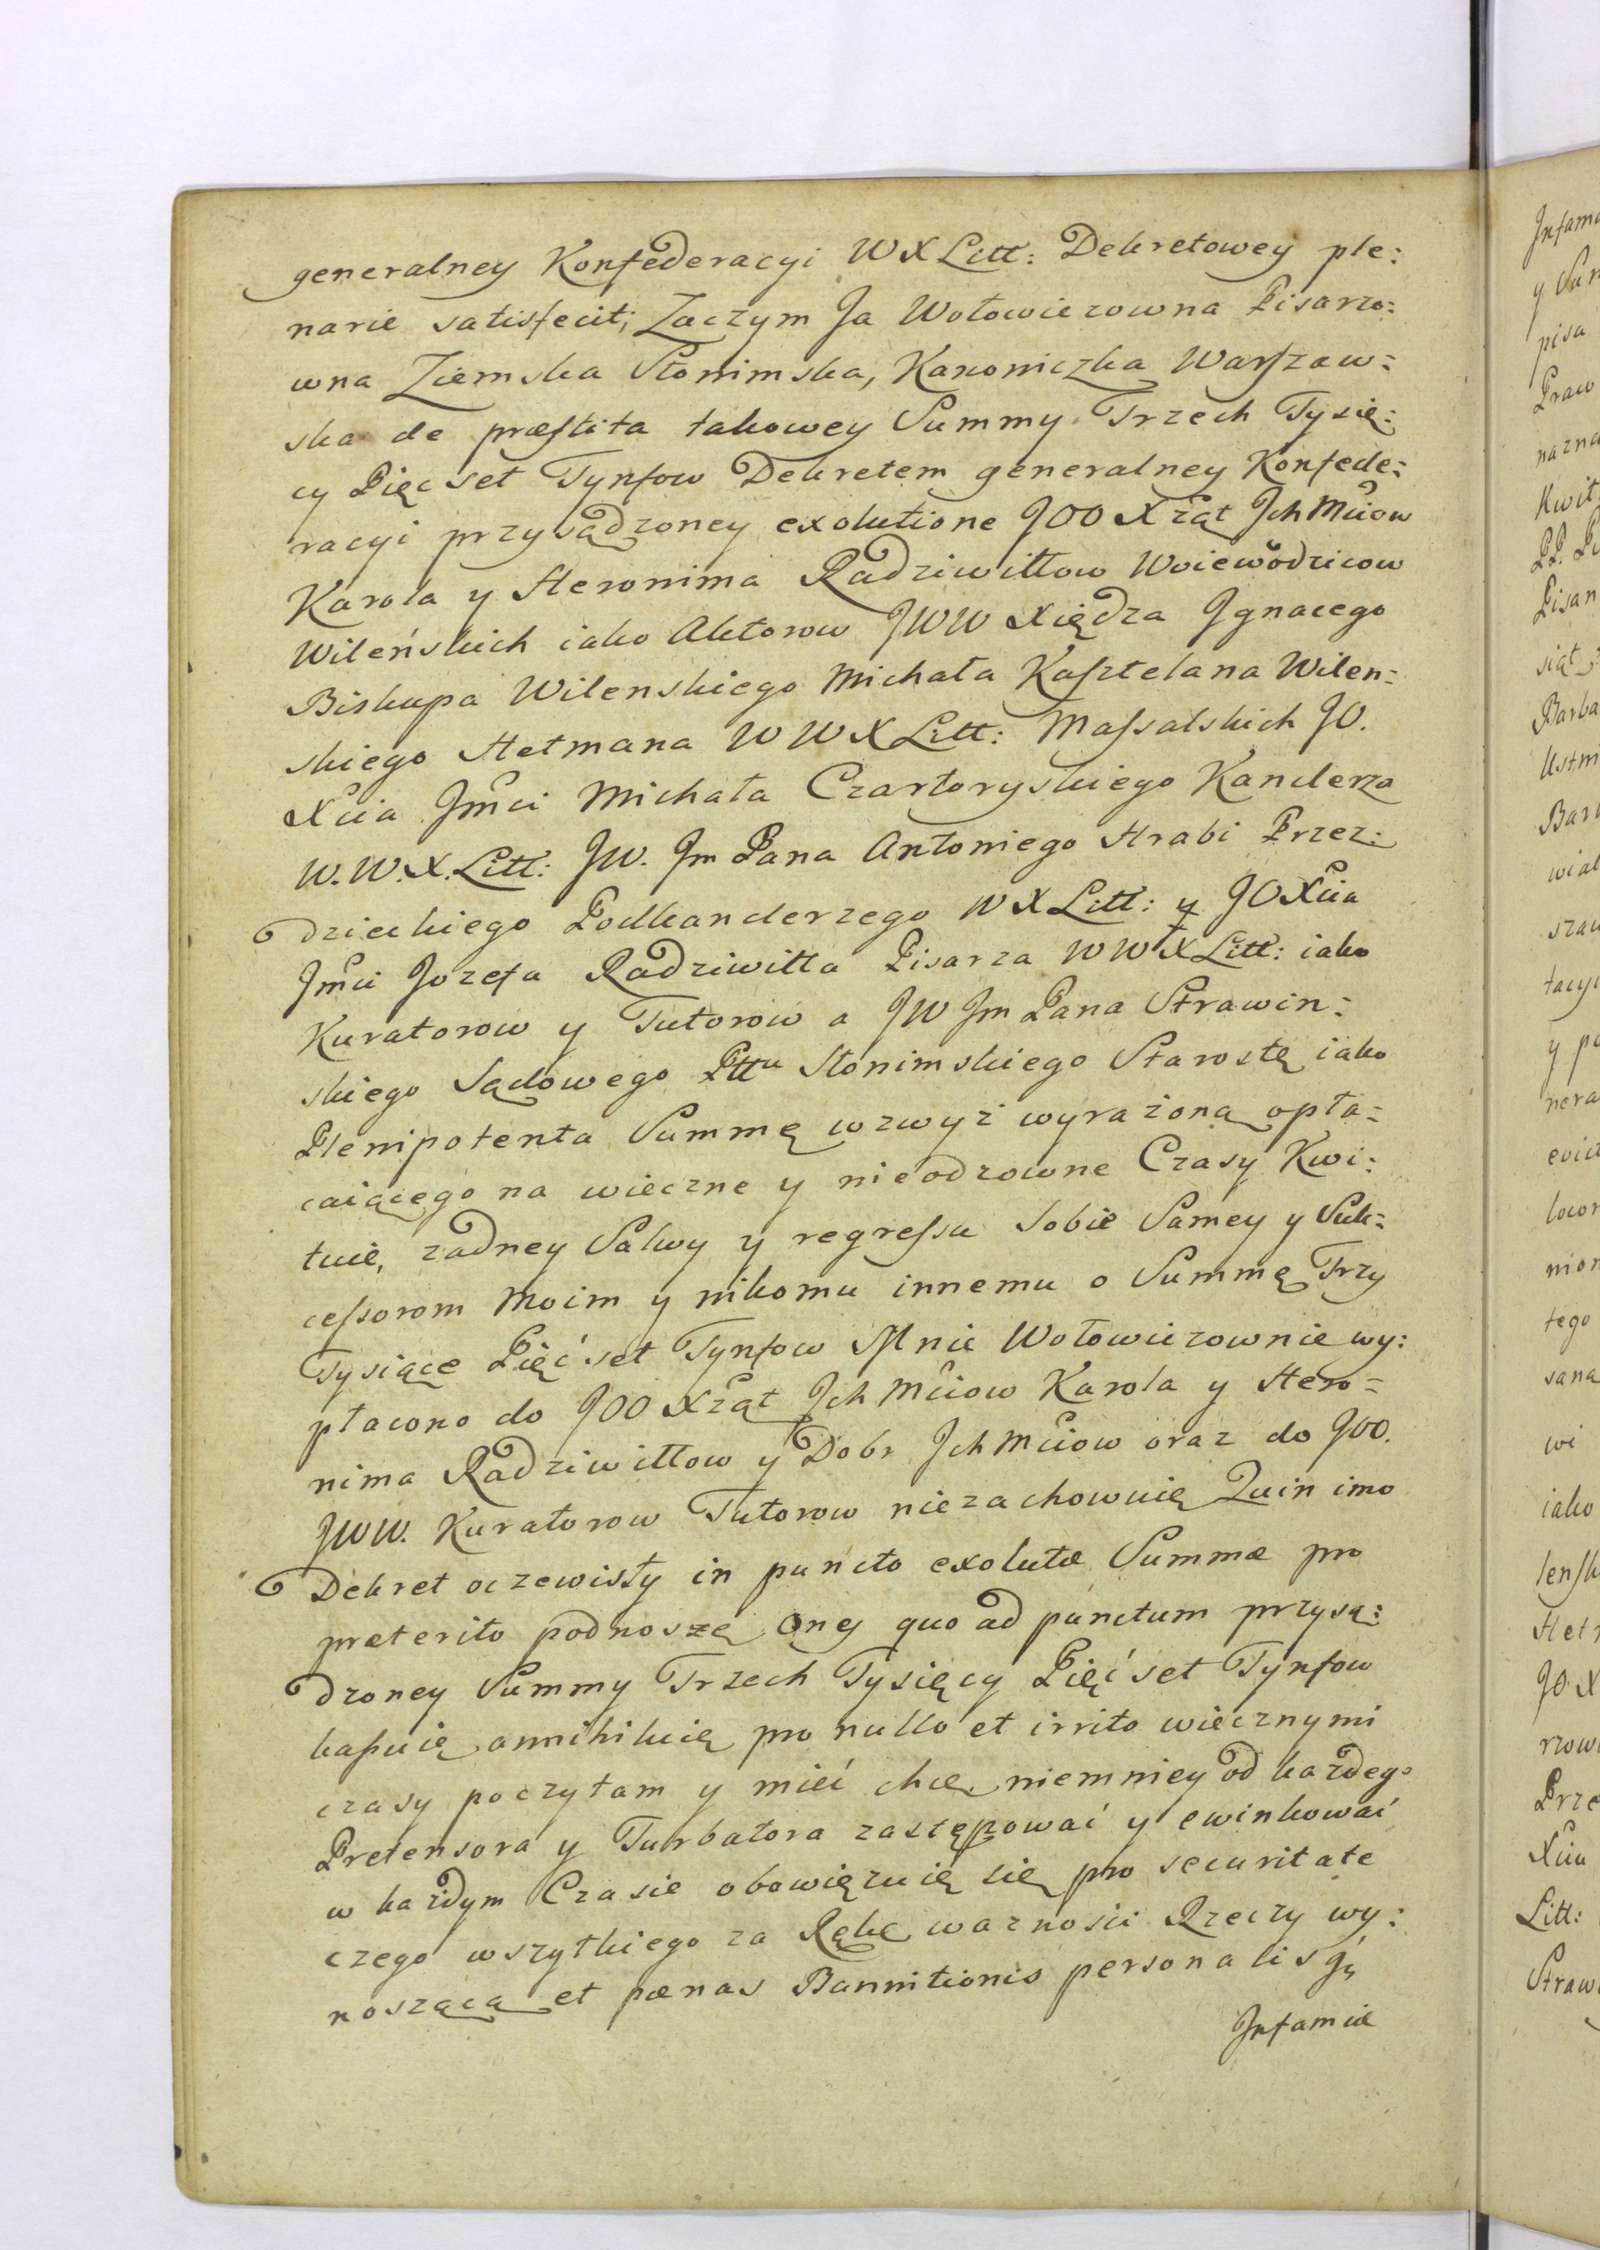 generalney Konfederacyi WXLitt: Dekretowey ple:
narie satisfecit; Zaczym Ja Wołowiczowna Pisarzo:
wna Ziemska Słonimska, Kanoniczka Warszaw=
ska de præstita takowey Summy Trzech Tysię:
cy Pięc set Tynfow Dekretem generalney Konfede:
racyi przysądzoney exolutione JOO Xżąt Jch Mciow
Karola y Heronima Radziwiłłow Woiewodzicow
Wileńskich iako Aktorow JWW Xiędza Jgnacego
Biskupa Wilenskiego Michała Kasztelana Wilen=
skiego Hetmana WWXLitt: Massalskich JO.
Xcia Jmci Michała Czartoryskiego Kanclerza
W.W.X.Litt: JW. Jm Pana Antoniego Hrabi Przez:
dzieckiego Podkanclerzego WXLitt: y JOXcia
Jmci Jozefa Radziwiłła Pisarza WWXLitt: iako
Kuratorow y Tutorow a JW Jm Pana Strawin:
skiego Sądowego Pttu Słonimskiego Starostę iako
Plenipotenta Summę wzwyż wyrażoną opła=
caiącego na wieczne y nieodzowne Czasy Kwi:
tuię, zadney Salwy y regressu Sobie Samey y Suk=
cessorom Moim y nikomu innemu o Summę Trzy
Tysiące Pięć set Tynfow Mnie Wołowiczownie wy:
płacono do JOO Xżąt Jch Mciow Karola y Hero=
nima Radziwiłłow y Dobr Jch Mciow oraz do JOO.
JWW. Kuratorow Tutorow niezachowuię Quin imo
Dekret oczewisty in puncto exolutæ Summæ pro
præterito podnoszę Oney quo ad punctum przysą:
dzoney Summy Trzech Tysięcy Pięć set Tynfow
kassuię annihiluię pro nullo et irrito wiecznymi
czasy poczytam y mieć chcę niemniey od każdego
Pretensora y Turbatora zastępować y ewinkować
w każdym Czasie obowięzuię się pro securitate
czego wszytkiego za Rękę ważności Rzeczy wy:
noszącą et pœnas Bannitionis personalis
Jnfamiæ
Jnfam
pisa
Praw
Kwit
Barba
tacyi
tego
sana
wi
iako
JO X
Prze
Xcia
Litt:
Straw